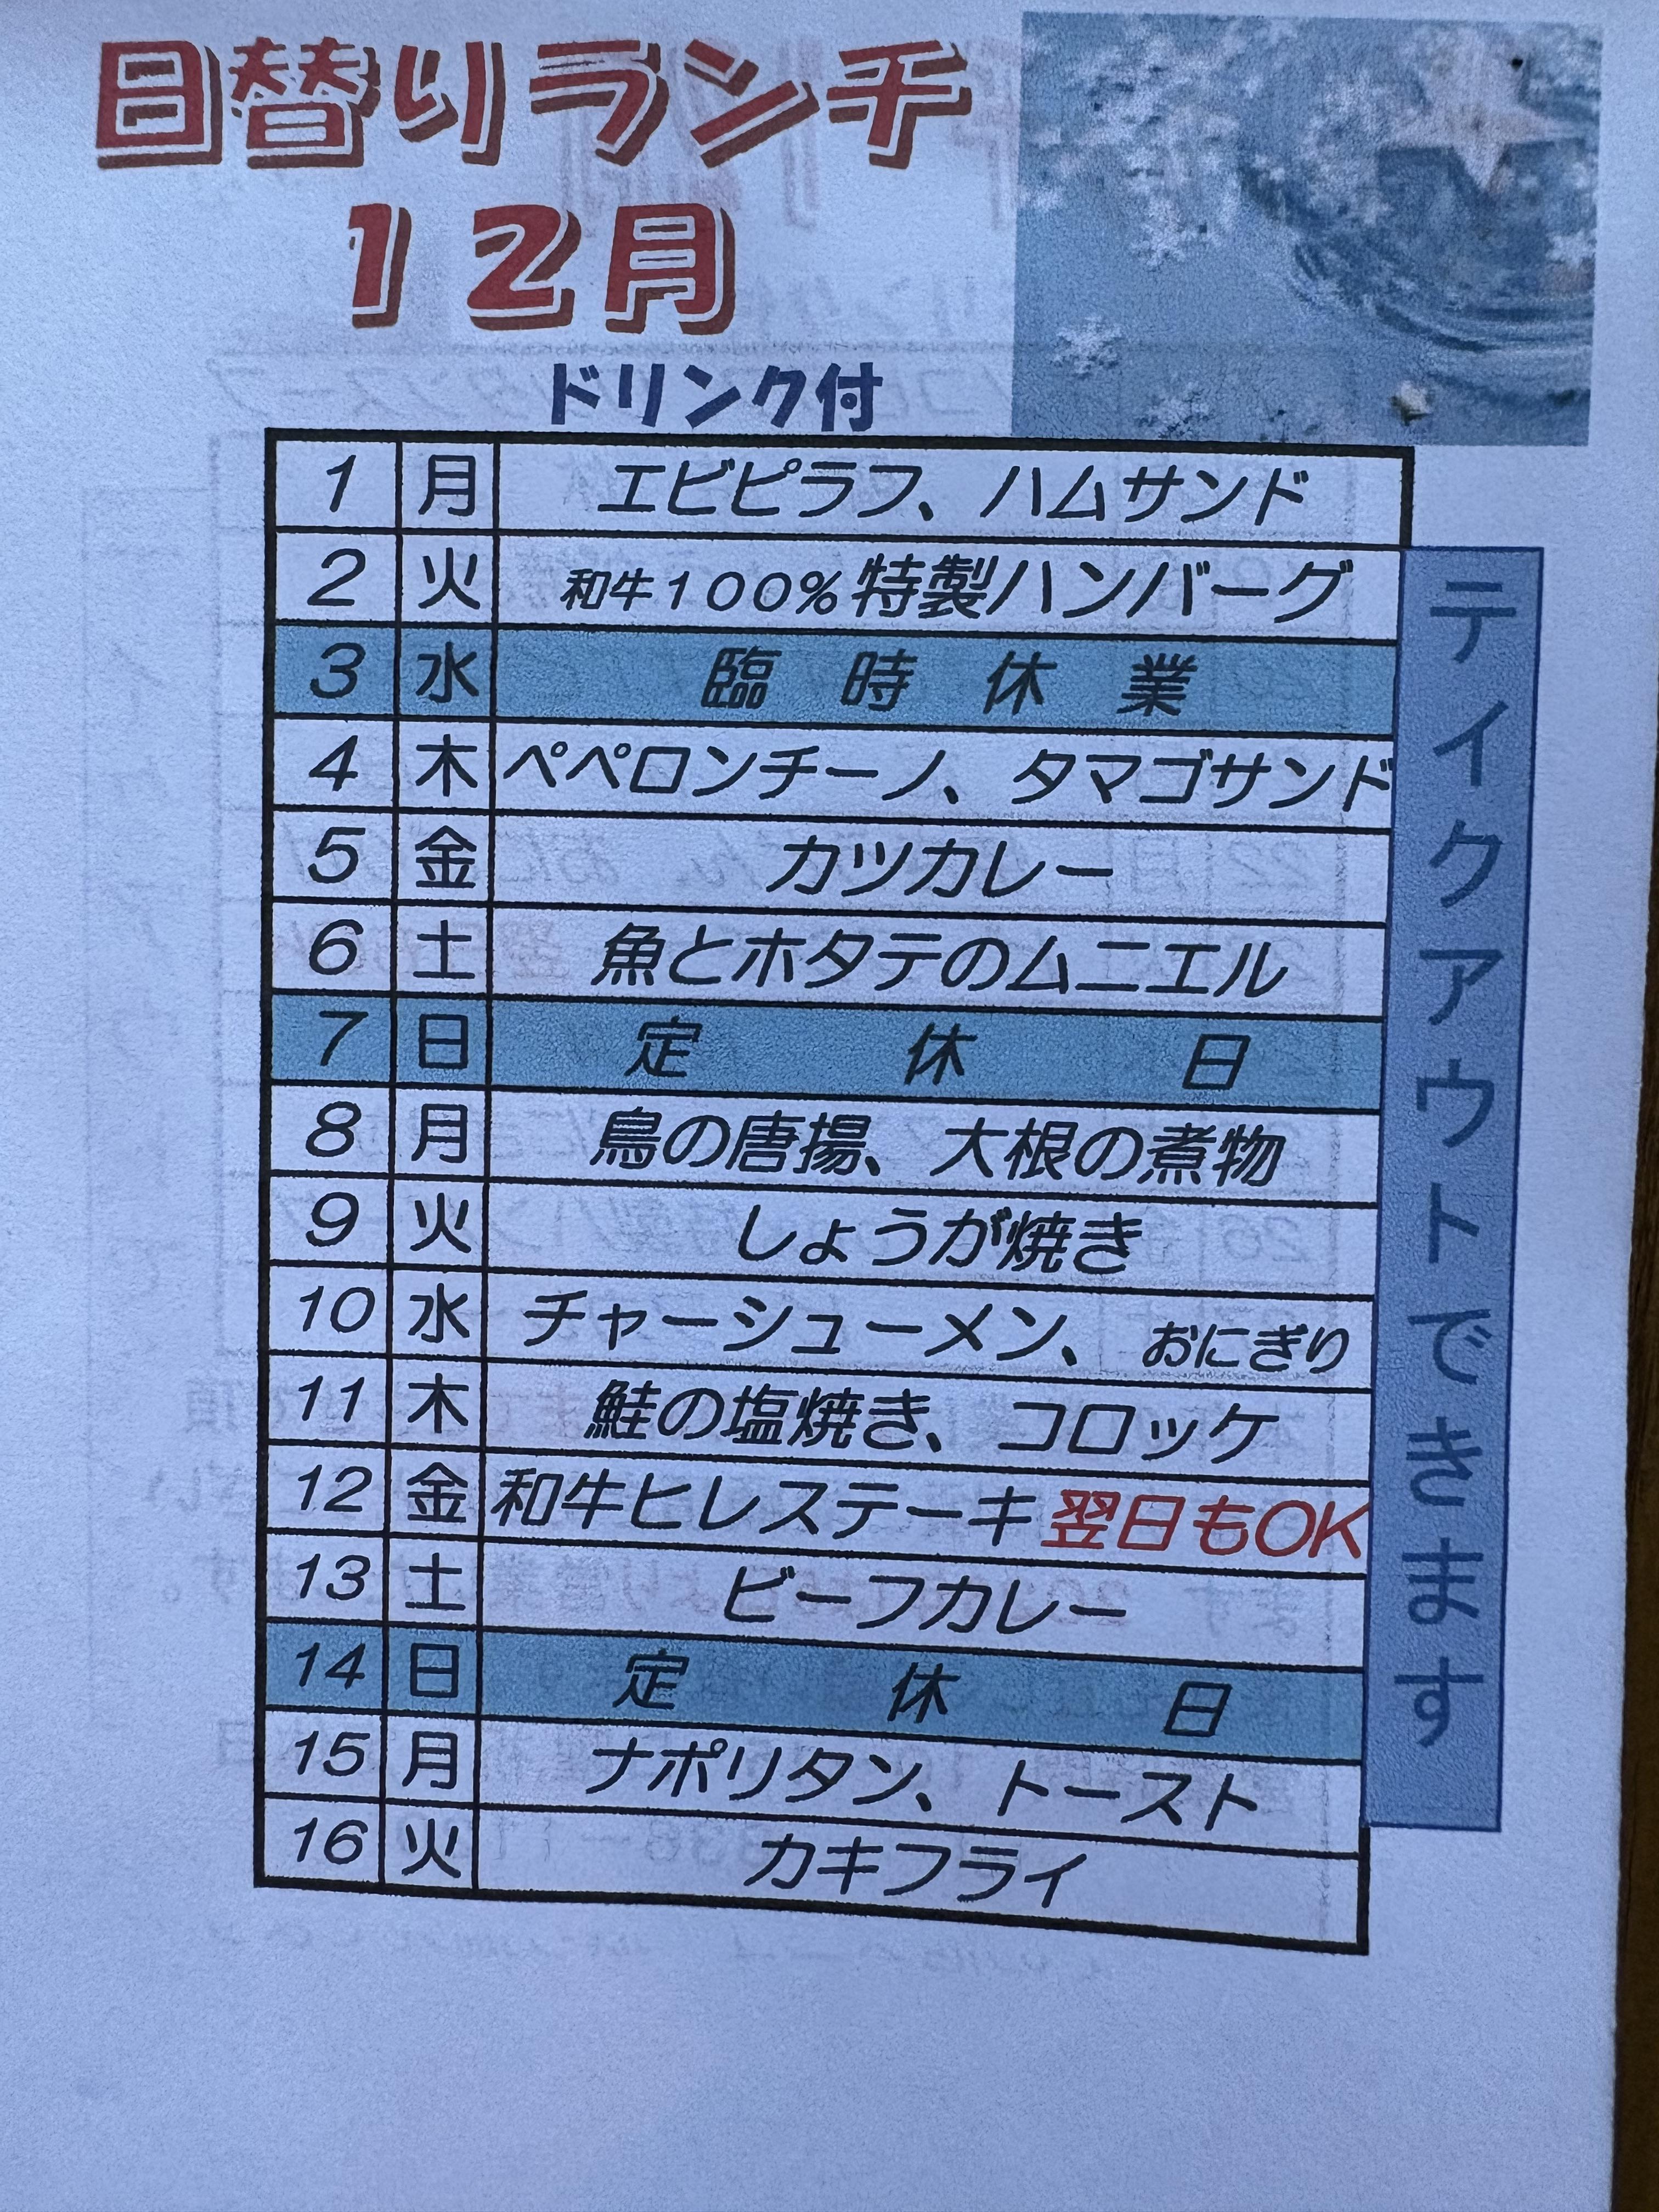 日替りランチ
12月
ドリンク付
1 月 エビピラフ、ハムサンド
2 火 和牛100%特製ハンバーグ
3 水 臨時休業
4 木 ペペロンチーノ、タマゴサンド
5 金 カツカレー
6 土 魚とホタテのムニエル
7 日 定休日
8 月 鳥の唐揚、大根の煮物
9 火 しょうが焼き
10 水 チャーシューメン、おにぎり
11 木 鮭の塩焼き、コロッケ
12 金 和牛ヒレステーキ 翌日もOK
13 土 ビーフカレー
14 日 定休日
15 月 ナポリタン、トースト
16 火 カキフライ
テイクアウトできます